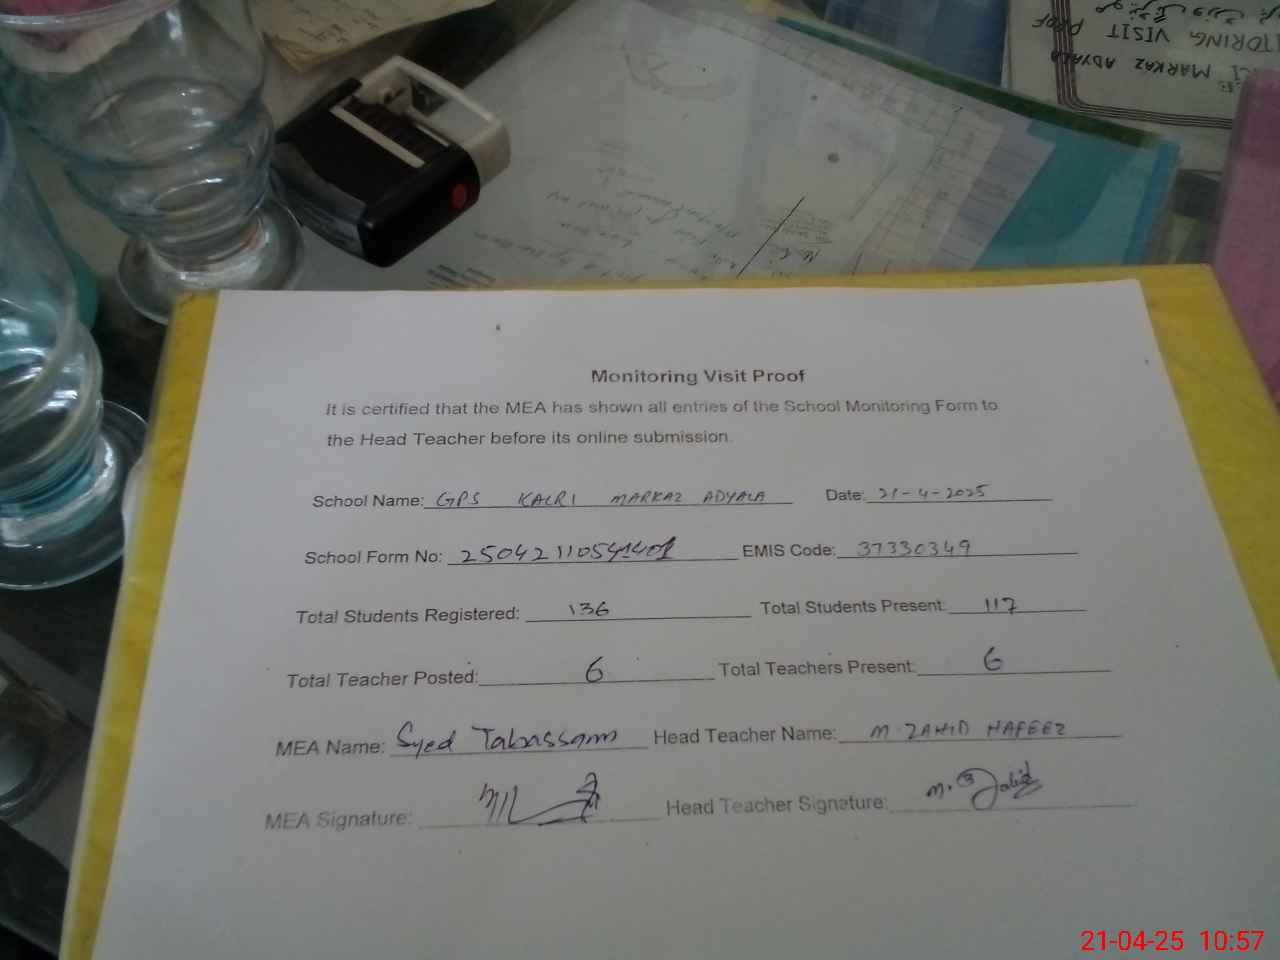 TORING VISIT PROF
MARKAZ ADYALA
Monitoring Visit Proof
It is certified that the MEA has shown all entries of the School Monitoring Form to
the Head Teacher before its online submission.
School Name: GPS KALRI MARKAZ ADYALA Date: 21-4-2025
School Form No: EMIS Code: 37330349
Total Students Registered: 136 Total Students Present: 117
Total Teacher Posted: 6 Total Teachers Present: 6
MEA Name: Syed Tabassam Head Teacher Name: M. ZAHID HAFEEZ
MEA Signature: Head Teacher Signature: M. Zahid
21-04-25 10:57